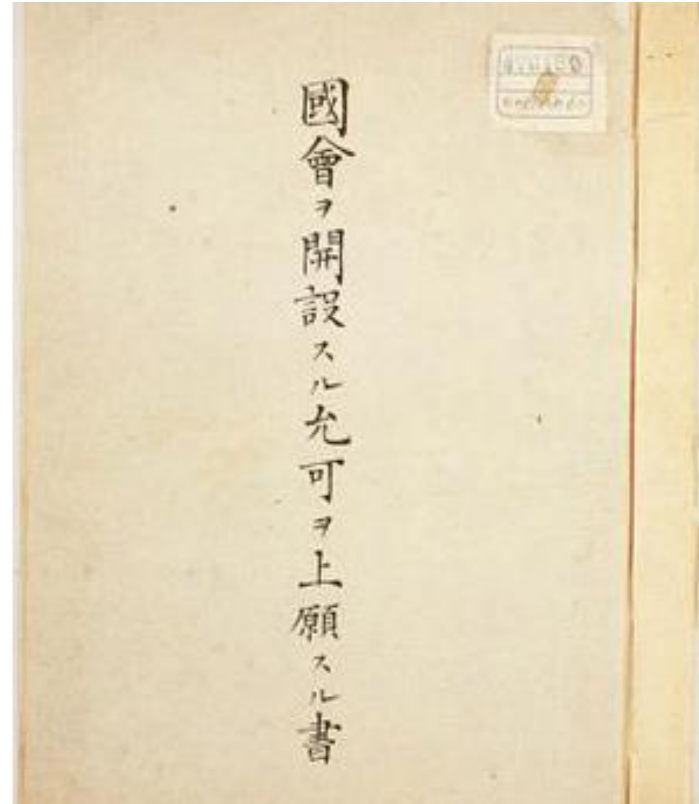 國會ヲ開設スル允可ヲ上願スル書